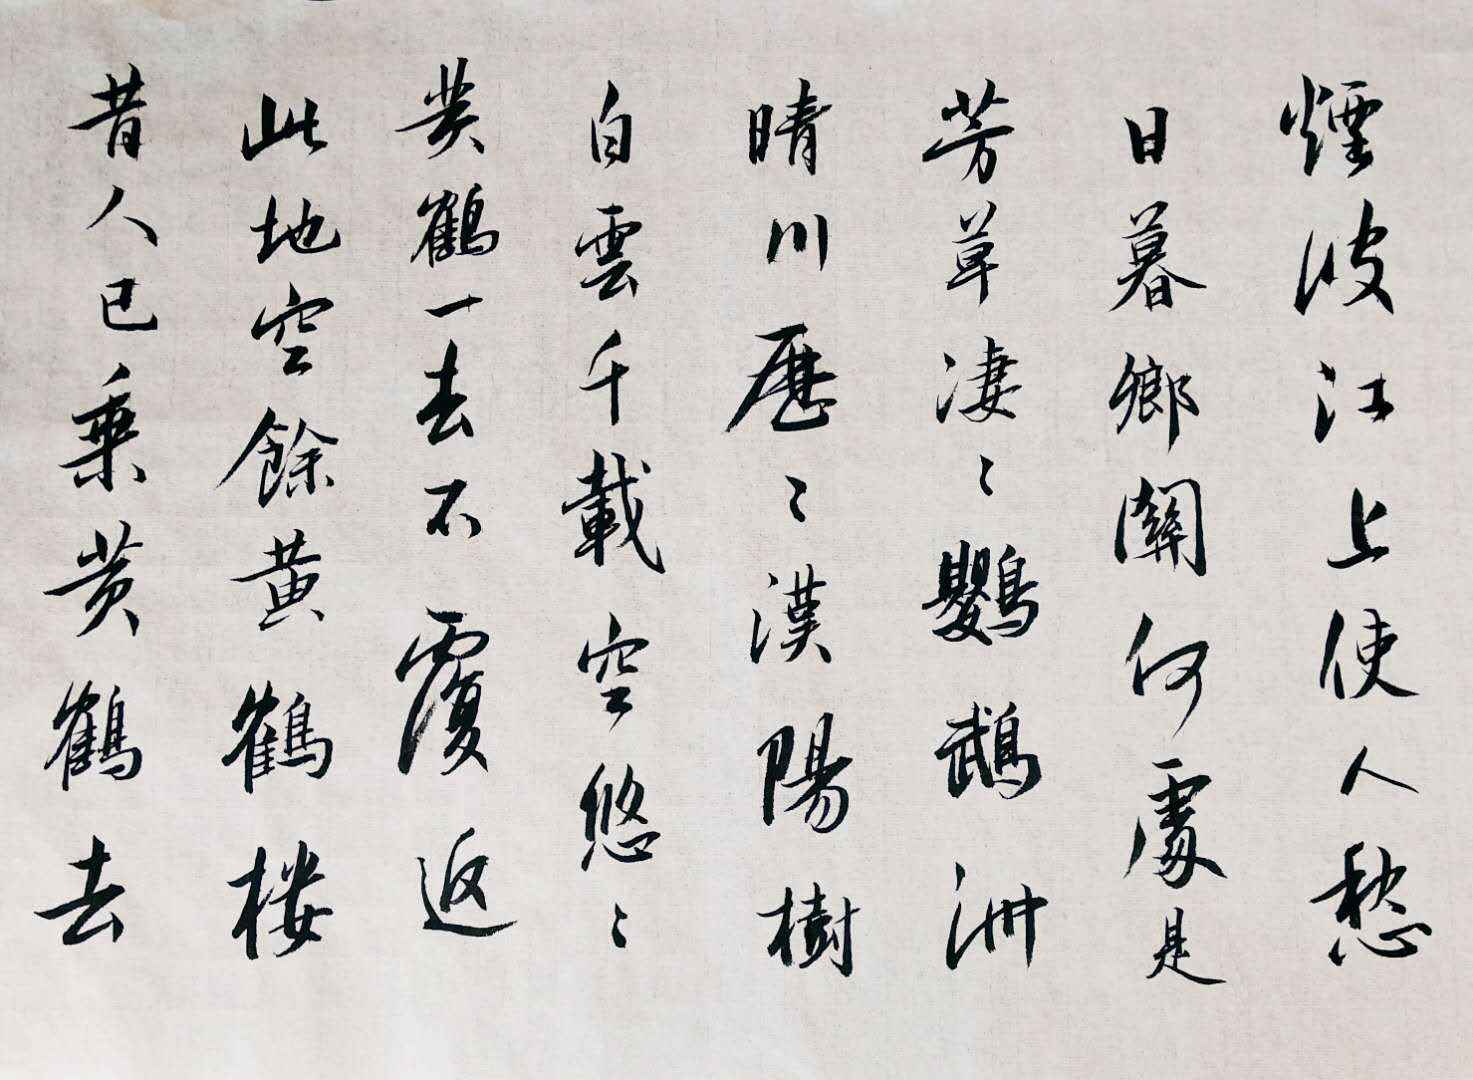 昔人已乘黄鶴去
此地空餘黄鶴楼
黄鶴一去不覆返
白雲千載空悠〻
晴川歷〻漢陽樹
芳草凄〻鸚鵡洲
日暮鄉關何處是
煙波江上使人愁